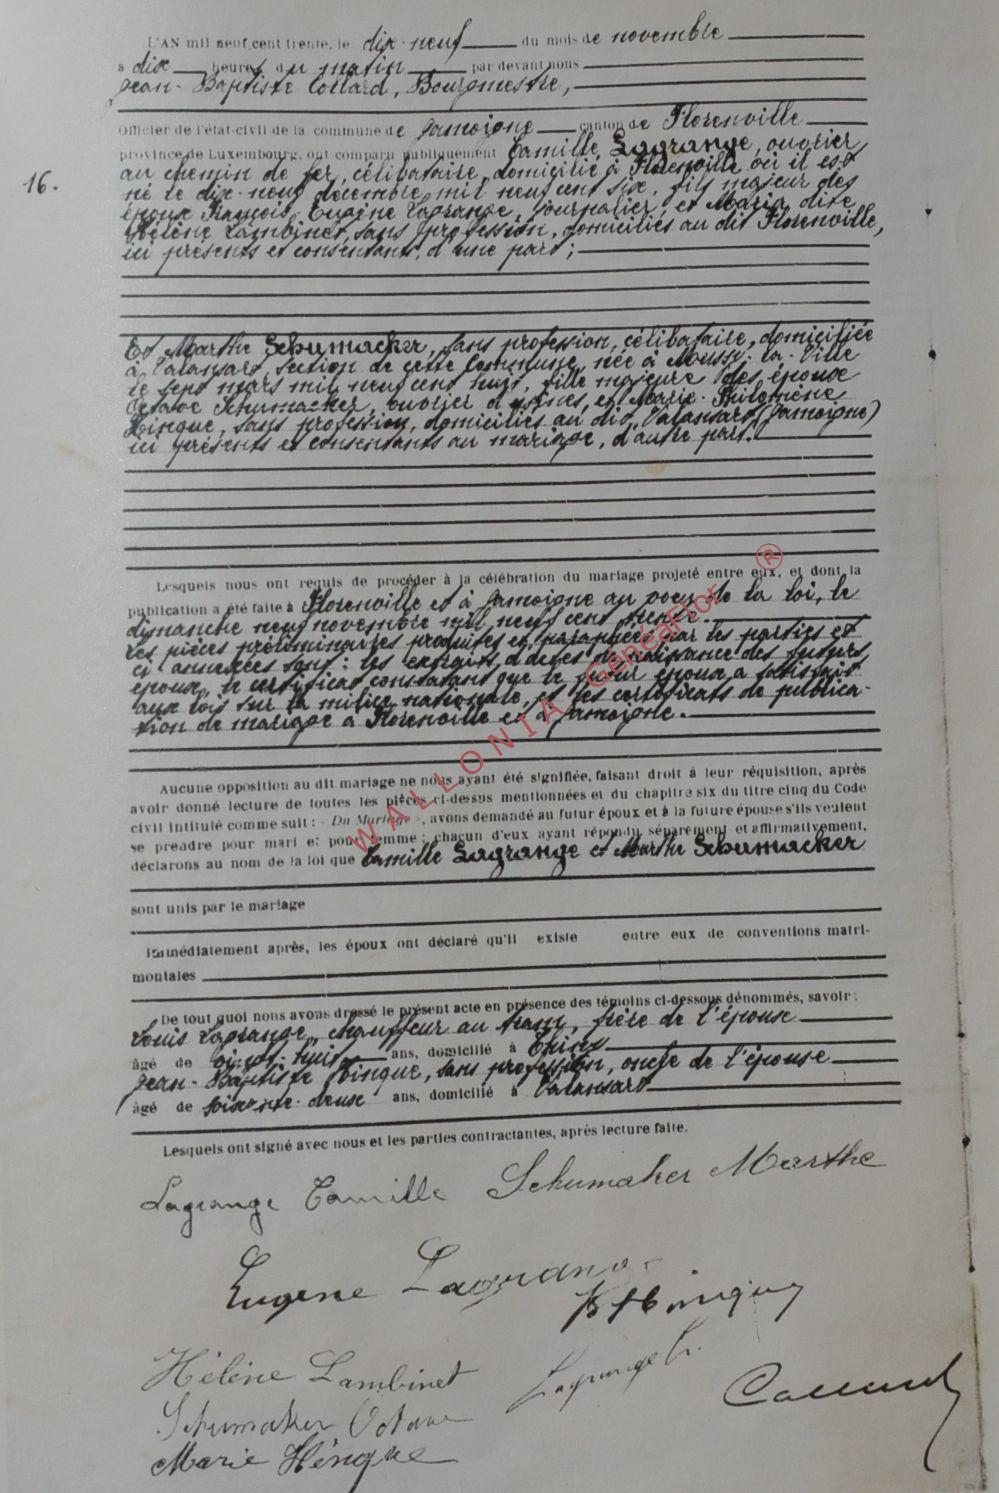 L'AN mil neuf cent trente, le dix-neuf du mois de novembre
à dix heures du matin par devant nous
Jean-Baptiste Collard, Bourgmestre,
Officier de l'état-civil de la commune de Jamoigne canton de Florenville
province de Luxembourg, ont comparu publiquement Camille Lagrange, ouvrier
16.
au chemin de fer, célibataire, domicilié à Florenville où il est
né le dix-neuf décembre mil neuf cent six, fils majeur des
époux François Eugène Lagrange, journalier, et Maria dite
Hélène Lambinet, sans profession, domiciliés au dit Florenville,
ici présents et consentants, d'une part;
Et Marthe Schumacker, sans profession, célibataire, domiciliée
à Valansart, section de cette Commune, née à Mussy-la-Ville
le sept mars mil neuf cent huit, fille majeure des époux
Octave Schumacker, ouvrier d'usines, et Marie-Philomène
Hinque, sans profession, domiciliés au dit Valansart (Jamoigne)
ici présents et consentants au mariage, d'autre part.
Lesquels nous ont requis de procéder à la célébration du mariage projeté entre eux, et dont la
publication a été faite à Florenville et à Jamoigne au voeu de la loi, le
dimanche neuf novembre mil neuf cent trente.
Les pièces préliminaires produites et paraphées par les parties et
ci annexées sont: les extraits d'actes de naissance des futurs
époux, le certificat constatant que le futur époux a satisfait
aux lois sur la milice nationale, et les certificats de publica-
tion de mariage à Florenville et à Jamoigne.
WALLONIA GénéaFlor ®
Aucune opposition au dit mariage ne nous ayant été signifiée, faisant droit à leur réquisition, après
avoir donné lecture de toutes les pièces ci-dessus mentionnées et du chapitre six du titre cinq du Code
civil intitulé comme suit: « Du Mariage », avons demandé au futur époux et à la future épouse s'ils veulent
se prendre pour mari et pour femme; chacun d'eux ayant répondu séparément et affirmativement,
déclarons au nom de la loi que Camille Lagrange et Marthe Schumacker
sont unis par le mariage
Immédiatement après, les époux ont déclaré qu'il existe entre eux de conventions matri-
moniales
De tout quoi nous avons dressé le présent acte en présence des témoins ci-dessous dénommés, savoir:
Louis Lagrange, chauffeur au tram, frère de l'épouse
âgé de vingt-huit ans, domicilié à
Jean-Baptiste Hinque, sans profession, oncle de l'épouse
âgé de soixante-deux ans, domicilié à Valansart
Lesquels ont signé avec nous et les parties contractantes, après lecture faite.
Lagrange Camille Schumaker Marthe
Eugène Lagrange
Hélène Lambinet Lagrange L.
Schumaker Octave
Marie Hinque